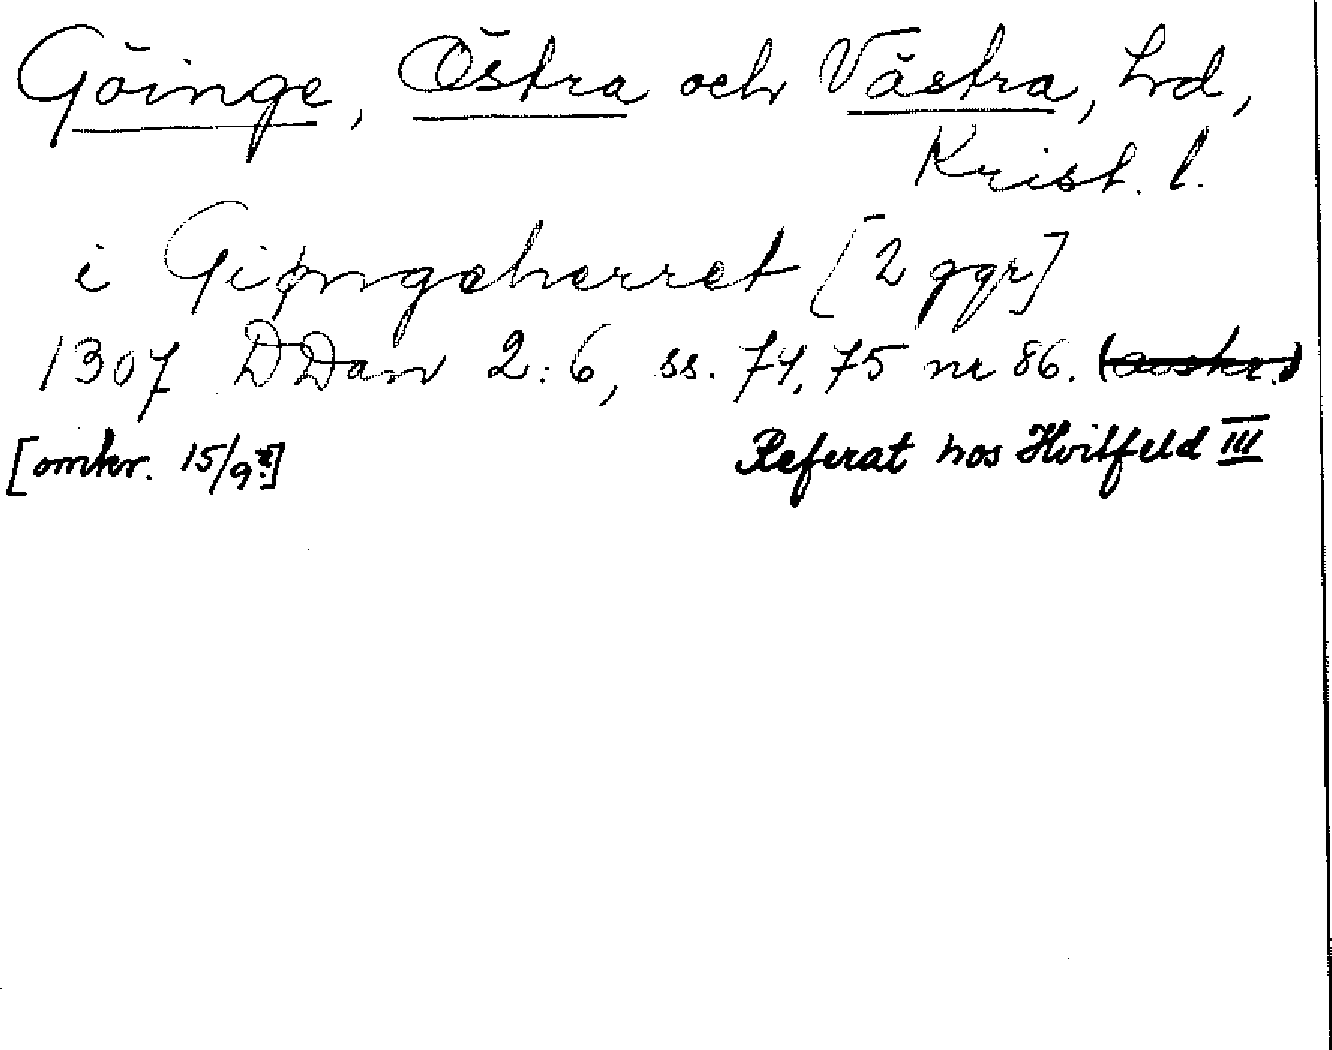 Göinge, Östra och Västra, hd,
Krist. l.
i Giøngeherret [2 ggr]
1307 DDan 2:6, ss. 74, 75 nr 86. (avskr.)
[omkr. 15/9?]
Referat hos Hvitfeld III